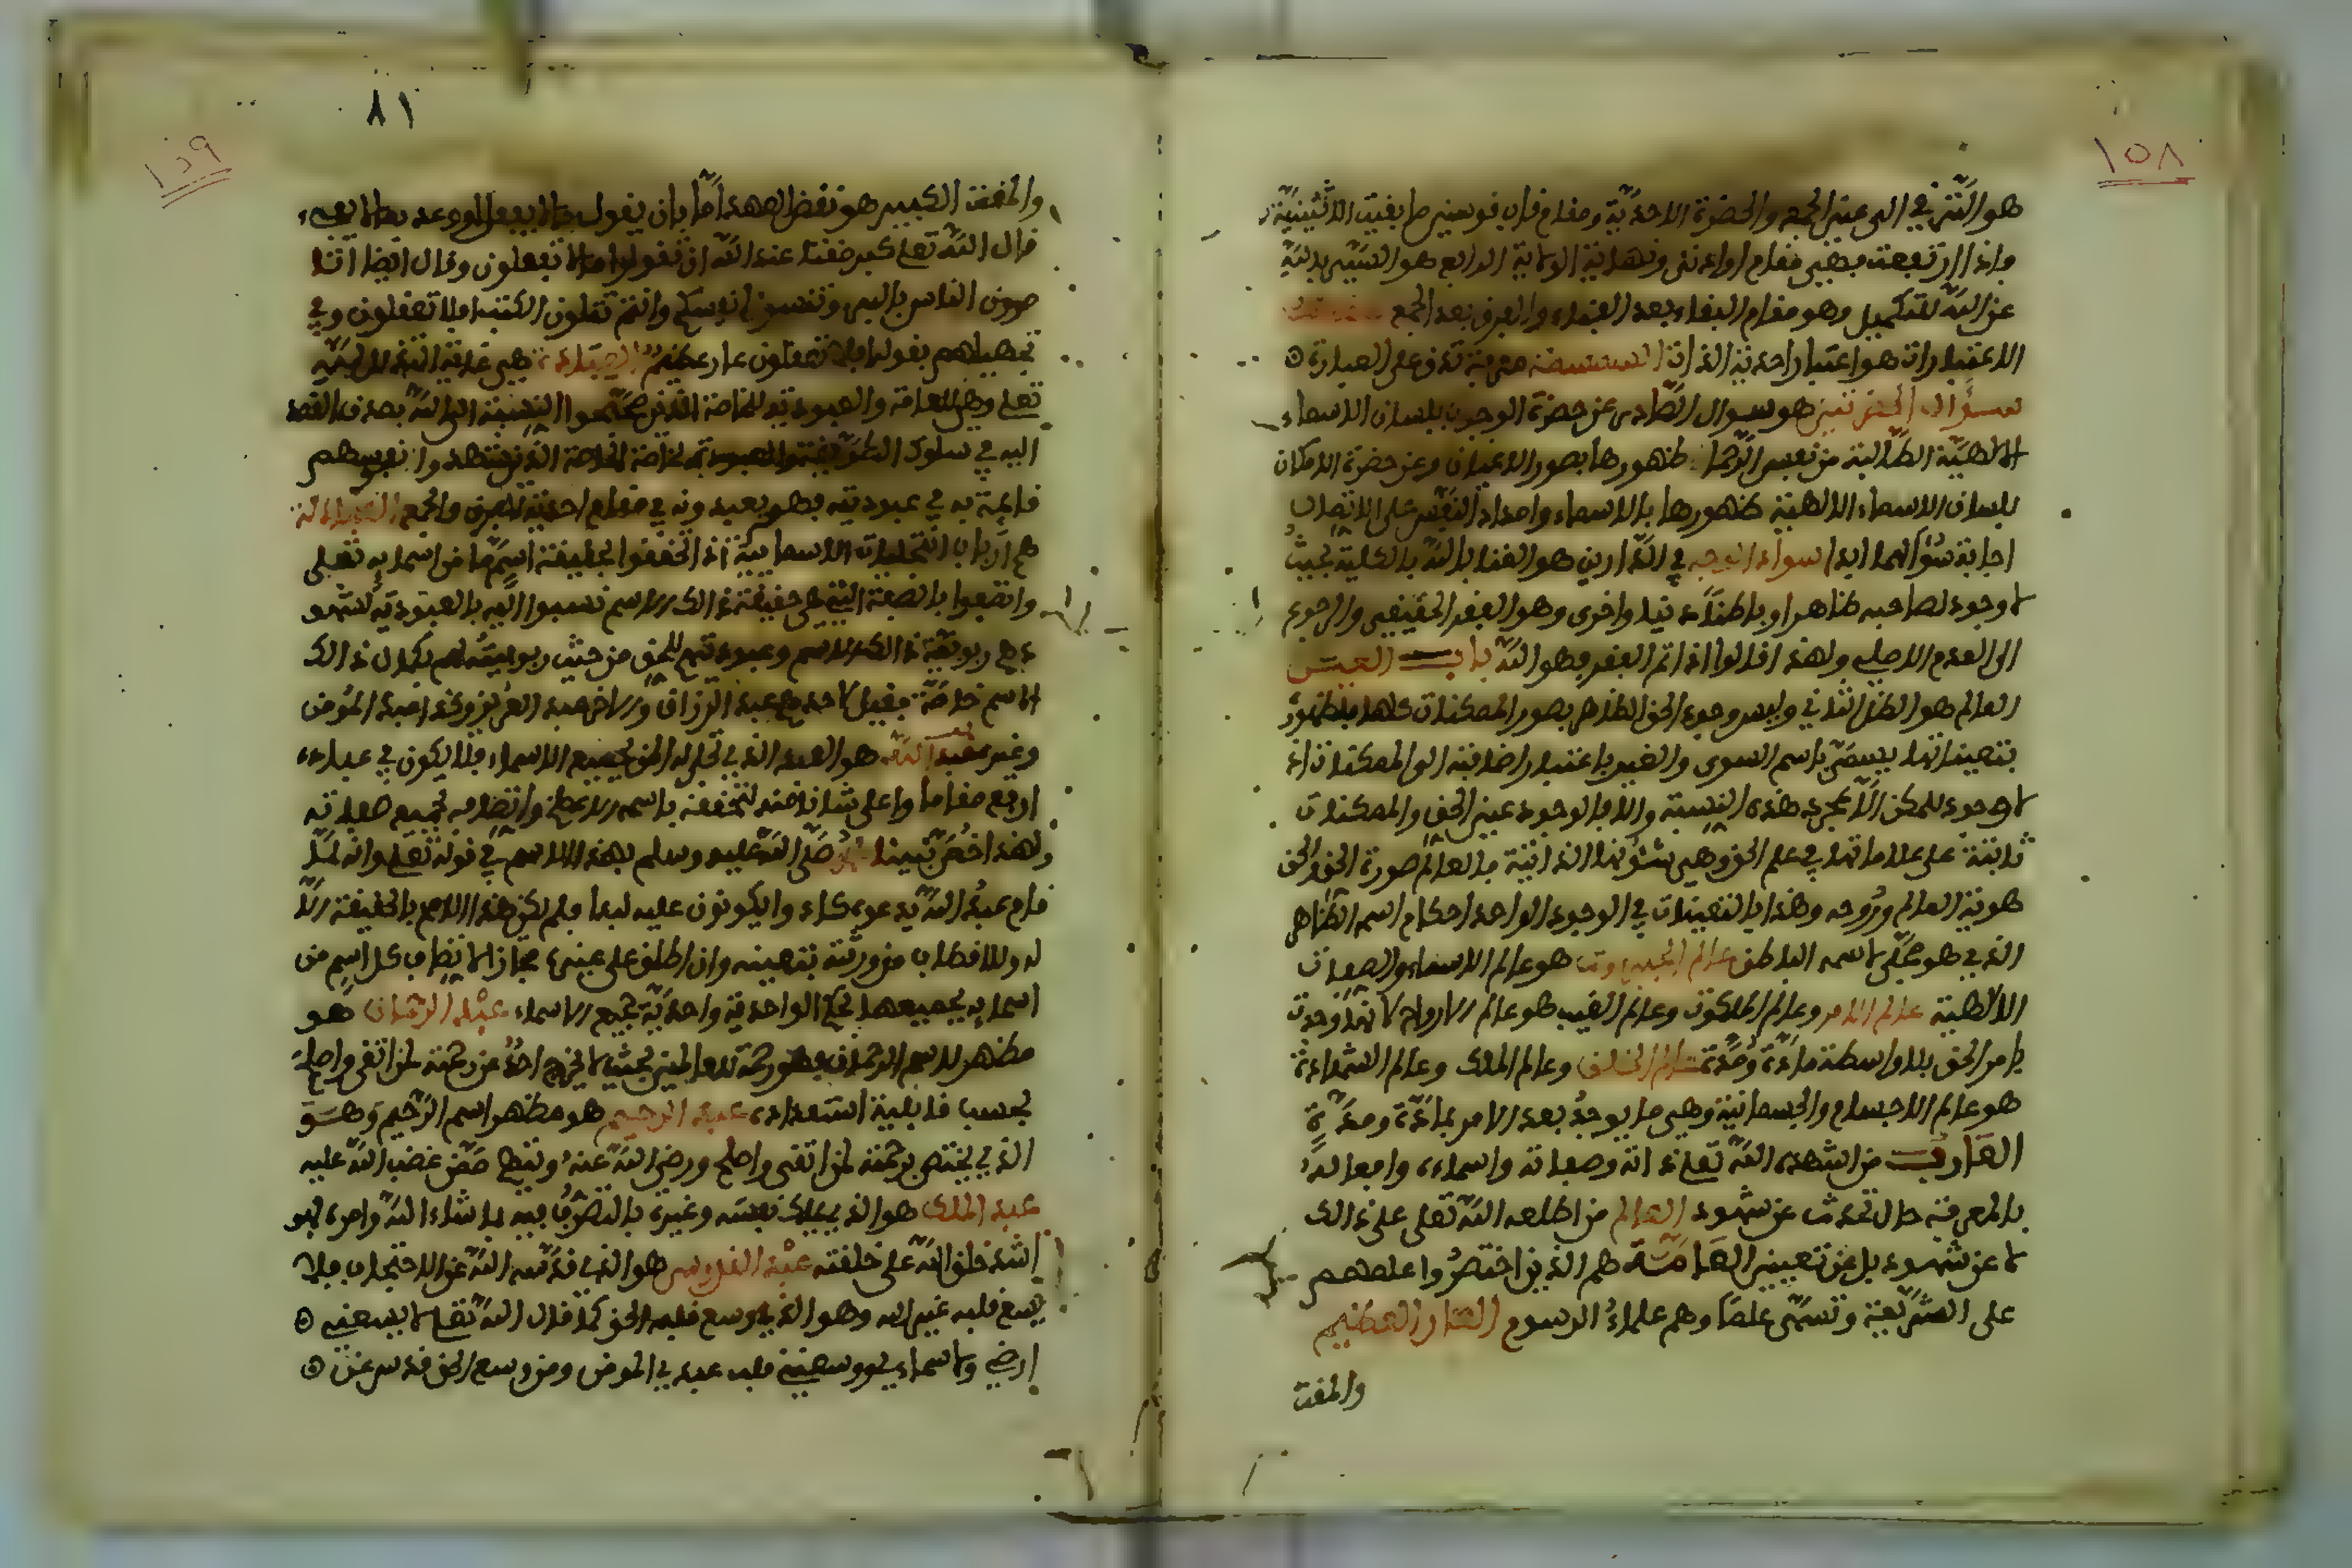 ١٥٨
هو الترقي الى عين الجمع والحضرة الاحدية ومقام قاب قوسين ما بقيت الاثنينية
واذا ارتفعت فهي مقام او ادنى ونهاية الولاية الرابع هو السير بالله
عن الله للتكميل وهو مقام البقاء بعد الفناء والفرق بعد الجمع
الاعتبارات هو اعتبار احدية الذات السمسمة معرفة تدق عن العبارة
سؤال الحضرتين هو سوال الصادر عن حضرة الوجوب بلسان الاسماء
الالهية الطالبة من نفس الرحمان ظهورها بصور الاعيان وعن حضرة الامكان
بلسان الاسماء الالهية ظهورها بالاسماء وامداد النفس على الاتصال
اجابة سؤالهما ابدا سواد الوجه في الدارين هو الفنا بالله بالكلية بحيث
لا وجود لصاحبه ظاهرا وباطنا دنيا واخرى وهو الفقر الحقيقي والرجوع
الى العدم الاصلي ولهذا قالوا اذا تم الفقر فهو الله باب العين
العالم هو الظل الثاني وليس وجود الحق الظاهر بصور الممكنات كلها فلظهوره
بتعيناتها يسمى باسم السوى والغير باعتبار اضافته الى الممكنات اذ
لا وجود للممكن الا بمجرد هذه النسبة والا فالوجود عين الحق والممكنات
ثابتة على علاماتها في علم الحق وهي شئونها الذاتية فالعالم صورة الحق والحق
هوية العالم وروحه وهذه التعينات في الوجود الواحد احكام اسمه الظاهر
الذي هو مجلى لاسمه الباطن عالم الجبروت هو عالم الاسماء والصفات
الالهية عالم الامر وعالم الملكوت وعالم الغيب هو عالم الارواح لانها وجدت
بامر الحق بلا واسطة مادة ومدة عالم الخلق وعالم الملك وعالم الشهادة
هو عالم الاجسام والجسمانية وهي ما يوجد بعد الامر بمادة ومدة
العارف من اشهده الله تعلى ذاته وصفاته واسماءه وافعاله
فالمعرفة حال تحدث عن شهود العالم من اطلعه الله تعلى على ذالك
لا عن شهود بل عن تعيين العامة هم الذين اختصروا علمهم
على الشريعة وتسمى علما وهم علماء الرسوم العار العظيم
والمقت
٨١
١٥٩
والمقت الكبير هو نقض العهد اما بان يقول ما لا يفعل او وعد بما لا يفي
قال الله تعلى كبر مقتا عند الله ان تقولوا ما لا تفعلون وقال ايضا اتا
مرون الناس بالبر وتنسون انفسكم وانتم تتلون الكتب افلا تعقلون وفي
تجهيلهم بقوله افلا تعقلون عار عظيم العبادة هي غاية التذلل لله
تعلى وهي للعامة والعبودية للخاصة الذين صححوا النسبة الى الله بصدق القصد
اليه في سلوك الطريقة والعبودة لخاصة الخاصة الذين شهدوا نفوسهم
قايمة به في عبوديته فهو يعبدونه في مقام احدية الفرق والجمع العبادلة
هم ارباب التجليات الاسمايية اذا تحققوا بحقيقة اسم ما من اسمايه تعلى
واتصفوا بالصفة التي هي حقيقة ذالك الاسم نسبوا اليه بالعبودية لشهو
دهم ربوبية ذالك الاسم وعبوديتهم للحق من حيث ربوبيته لهم بكمال ذالك
الاسم خاصة فقيل لاحدهم عبد الرزاق والاخر عبد العزيز وكذا عبد المومن
وغيره عبد الله هو العبد الذي تجلى له الحق بجميع الاسماء فلا يكون في عباده
ارفع مقاما واعلى شانا منه لتحققه باسمه الاعظم واتصافه بجميع صفاته
ولهذا خص نبينا صلى الله عليه وسلم بهذا الاسم في قوله تعلى وانه لما
قام عبد الله يدعوه كادوا يكونون عليه لبدا فلم يكن هذا الاسم بالحقيقة الا
له وللاقطاب من ورثته بتعيينه وان اطلق على غيره مجازا لاتصاف كل اسم من
اسمايه بجميعها بحكم الواحدية واحدية جميع الاسماء عبد الرحمان هو
مظهر الاسم الرحمان فهو رحمة للعالمين بحيث لا يخرج احد من رحمته لمن اتقى واصلح
بحسب قابلية استعداده عبد الرحيم هو مظهر اسم الرحيم وهو
الذي يختص برحمته لمن اتقى واصلح ورضي الله عنه وينتقم ممن غضب الله عليه
عبد الملك هو الذي يملك نفسه وغيره بالتصرف فيه بما شاء الله وامره فهو
اشد خلق الله على خلقته عبد القدوس هو الذي قدسه الله عن الاحتجاب فلا
يسع قلبه غير الله وهو الذي وسع قلبه الحق كما قال الله تعلى لا يسعني
ارضي ولا سماءي ووسعني قلب عبدي المومن ومن وسع الحق قدس عن